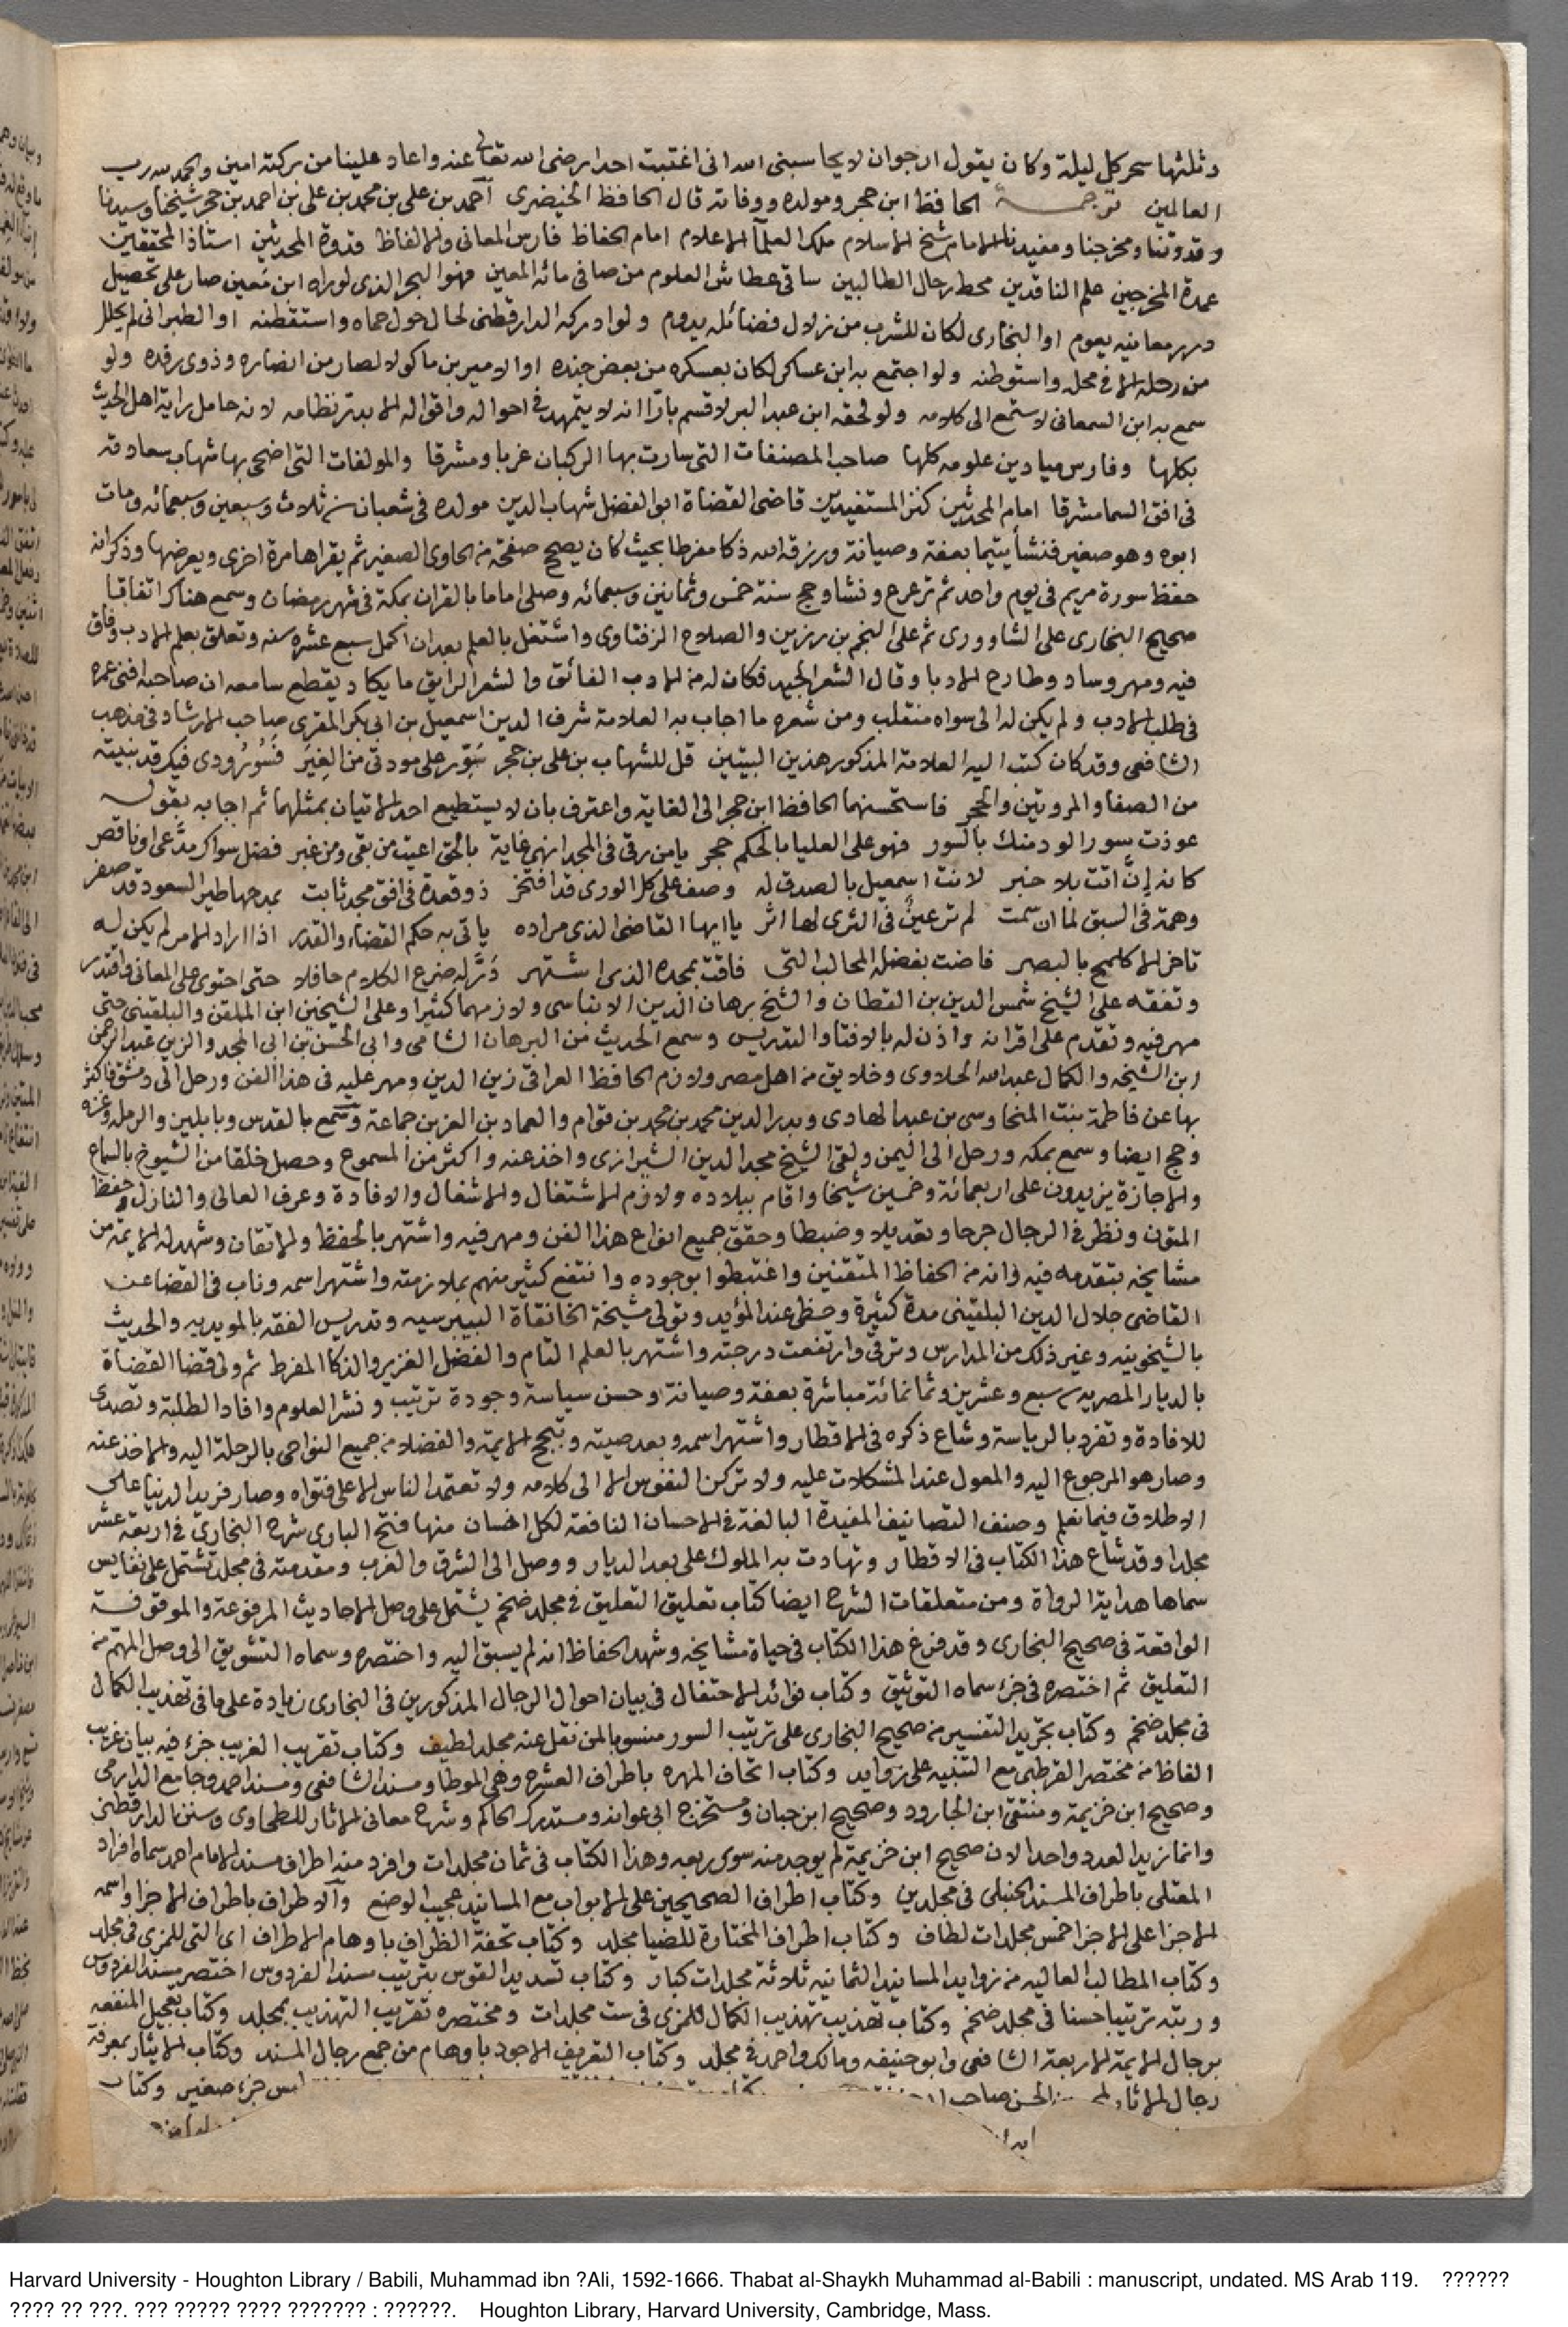 وثلثها سحر كل ليلة وكان يقول ارجوان لا يحاسبنى الله انى اغتبت احدا رضى الله تعالى عنه واعاد علينا من بركته امين والحمد لله رب
العالمين ترجمة الحافظ ابن حجر ومولده ووفاته قال الحافظ الخيضرى احمد بن على بن محمد بن على بن احمد بن حجر شيخنا وسيدنا
وقدوتنا ومخرجنا ومفيدنا الامام شيخ الاسلام ملك العلمآ الاعلام امام الحفاظ فارس المعانى والالفاظ قدوة المحدثين استاذ المحققين
عمدة المخرجين علم الناقدين محط رحال الطالبين ساقى عطاش العلوم من صافى مائه المعين فهو البحر الذى لوراه ابن معين صار على تحصيل
درر معانيه يعوم او البخارى لكان للشرب من زلال فضائله يدوم ولو ادركه الدارقطنى لحال حول حماه واستقطنه او الطبرانى لم يحلل
من رحله الا فى محله واستوطنه ولو اجتمع به ابن عساكر لكان بعسكره من بعض جنده او الامير بن ماكولا لصار من انصاره وذوى رفده ولو
سمع به ابن السمعانى لاستمع الى كلامه ولو لحقه ابن عبد البر لاقسم بارّا انه لا يتمهد فى احواله واقواله الا بدر نظامه لانه حامل راية اهل الحديث
بكلها وفارس ميادين علومه كلها صاحب المصنفات التى سارت بها الركبان غربا ومشرقا والمولفات التى اضحى بها شهاب سعادته
فى افق السما مشرقا امام المحدثين كنز المستفيدين قاضى القضاة ابو الفضل شهاب الدين مولده فى شعبان سنة ثلاث وسبعين وسبعمائه ومات
ابوه وهو صغير فنشأ يتيما بعفة وصيانة ورزقه الله ذكا مفرطا بحيث كان يصحح صفحة من الحاوى الصغير ثم يقراها مرة اخرى ويعرضها وذكر انه
حفظ سورة مريم فى يوم واحد ثم ترعرع ونشا وحج سنة خمس وثمانين وسبعمائه وصلى اماما بالقران بمكة فى شهر رمضان وسمع هناك اتفاقيا
صحيح البخارى على النشاوورى ثم على النجم بن رزين والصلاح الزفتاوى واشتغل بالعلم بعد ان اكمل سبع عشره سنه وتعلق بعلم الادب وفاق
فيه ومهر وساد وطارح الادبا وقال الشعر الجيد فكان له من الادب الفائق والشعر الرايق ما يكاد يقطع سامعه ان صاحبه افنى عمره
فى طلب الادب ولم يكن له الى سواه منقلب ومن شعره ما اجاب به العلامة شرف الدين اسمعيل بن ابى بكر المقرى صاحب الارشاد فى مذهب
الشافعى وقد كان كتب اليه العلامة المذكور هذين البيتين قل للشهاب بن على بن حجر سَوِّر على مودتى من الغِيَر فَسُورُ ودى فيك قد بنيته
من الصفا والمروتين والحجر فاستحسنهما الحافظ ابن حجر الى الغاية واعترف بان لا يستطيع احد الاتيان بمثلهما ثم اجابه بقوله
عوذت سور الود منك بالسور فهو على العليا بالحكم حجر يا من رقى فى المجد انهى غاية بالحق اعيت من بقى ومن غبر فضل سواك مدّعى او ناقص
كانه إنّ اتت بلا خبر لانت اسمعيل بالصدق له وصف على كل الورى قد افتخر ذو قعدة فى افق مجد ثابت بمدحها طير السعود قد صفر
وهمة فى السبق لما ان سمت لم تر عينٌ فى الثرى لها اثر يا ايها القاضى الذى مراده ياتى به حكم القضاء والقدر اذا اراد الامر لم يكن له
تاخر الا كلمح بالبصر فاضت بفضله المحالب التى فاقت بمجده الذى اشتهر دَرَّ له ضرع الكلام حافلا حتى احتوى على المعانى واقتدر
وتفقه على الشيخ شمس الدين بن القطان والشيخ برهان الدين الابناسى ولازمهما كثيرا وعلى الشيخين ابن الملقن والبلقينى حتى
مهر فيه وتقدم على اقرانه واذن له بالافتا والتدريس وسمع الحديث من البرهان الشامى وابى الحسن بن ابى المجد والزين عبد الرحمن
ابن الشيخه والكمال عبد الله الحلاوى وخلايق من اهل مصر ولازم الحافظ العراقى زين الدين ومهر عليه فى هذا الفن ورحل الى دمشق فاكثر
بها عن فاطمة بنت المنجا وسى بن عبد الهادى وبدر الدين محمد بن محمد بن قوام والعماد بن العز بن جماعة وسمع بالقدس ونابلس والرمله وغزه
وحج ايضا وسمع بمكه ورحل الى اليمن ولقى الشيخ مجد الدين الشيرازى واخذ عنه واكثر من المسموع وحصل خلقا من الشيوخ بالسماع
والاجازة يزيدون على اربعمائة وخمسين شيخا واقام ببلاده ولازم الاشتغال والاشغال والافادة وعرف العالى والنازل وحفظ
المتون ونظر فى الرجال جرحا وتعديلا وضبطا وحقق جميع انواع هذا الفن ومهر فيه واشتهر بالحفظ والاتقان وشهد له الايمة من
مشايخه بتقدمه فيه وانه من الحفاظ المتقنين واغتبطوا بوجوده وانتفع كثير منهم بملازمته واشتهر اسمه وناب فى القضا عن
القاضى جلال الدين البلقينى مدة كثيرة وحظى عند المؤيد وتولى مشيخة الخانقاة البيبرسيه وتدريس الفقه بالمويديه والحديث
بالشيخونيه وغير ذلك من المدارس وترقى وارتفعت درجته واشتهر بالعلم التام والفضل الغزير والذكا المفرط ثم ولى قضا القضاة
بالديار المصريه سنة سبع وعشرين وثمانمائة مباشرة بعفة وصيانة وحسن سياسة وجودة ترتيب ونشر العلوم وافاد الطلبة وتصدى
للافادة وتفرد بالرياسة وشاع ذكره فى الاقطار واشتهر اسمه وبعد صيته وتبجح الايمة والفضلا من جميع النواحى بالرحلة اليه والاخذ عنه
وصار هو المرجوع اليه والمعول عند المشكلات عليه ولا تركن النفوس الا الى كلامه ولا تعتمد الناس الا على فتواه وصار فريد الدنيا على
الاطلاق فيما نعلم وصنف التصانيف المفيدة البالغة فى الاحسان النافعة لكل انسان منها فتح البارى شرح البخارى فى اربعة عشر
مجلدا وقد شاع هذا الكتاب فى الاقطار وتهادت به الملوك على بعد الديار ووصل الى الشرق والغرب ومقدمته فى مجلد تشتمل على نفايس
سماها هداية الرواة ومن متعلقات الشرح ايضا كتاب تعليق التعليق فى مجلد ضخم يشتمل على وصل الاحاديث المرفوعة والموقوفة
الواقعة فى صحيح البخارى وقد فرغ هذا الكتاب فى حياة مشايخه وشهد الحفاظ انه لم يسبق اليه واختصره وسماه التشويق الى وصل المهم من
التعليق ثم اختصره فى جزء سماه التوثيق وكتاب فوائد الاحتفال فى بيان احوال الرجال المذكورين فى البخارى زيادة على ما فى تهذيب الكمال
فى مجلد ضخم وكتاب تجريد التفسير من صحيح البخارى على ترتيب السور منسوبا لمن نقل عنه مجلد لطيف وكتاب تقريب الغريب جزء فيه بيان غريب
الفاظ من مختصر القرطبى مع التنبيه على زوايد وكتاب اتحاف المهره باطراف العشره وهى الموطا ومسند الشافعى ومسند احمد وجامع الدارمى
وصحيح ابن خزيمة ومنتقى ابن الجارود وصحيح ابن حبان ومستخرج ابى عوانه ومستدرك الحاكم وشرح معانى الاثار للطحاوى وسنن الدارقطنى
وانما زيد العدد واحدا لان صحيح ابن خزيمة لم يوجد منه سوى ربعه وهذا الكتاب فى ثمان مجلدات وافرد منه اطراف مسند الامام احمد سماه افراد
المعتلى باطراف المسند الحنبلى فى مجلدين وكتاب اطراف الصحيحين على الابواب مع المسانيد عجيب الوضع والاطراف باطراف الاجزا واسمه
الاجزا على الاجزا خمس مجلدات لطاف وكتاب اطراف المختارة للضيا مجلد وكتاب تحفة الظراف باوهام الاطراف اى التى للمزى فى مجلد
وكتاب المطالب العاليه من زوايد المسانيد الثمانيه ثلاثة مجلدات كبار وكتاب تسديد القوس بترتيب مسند الفردوس اختصر مسند الفردوس
ورتبه ترتيبا حسنا فى مجلد ضخم وكتاب تهذيب تهذيب الكمال للمزى فى ست مجلدات ومختصره تقريب التهذيب بمجلد وكتاب تعجيل المنفعه
برجال الايمة الاربعة الشافعى وابو حنيفه ومالك واحمد فى مجلد وكتاب التعريف الاجود باوهام من جمع رجال المسند وكتاب الايثار بمعرفة
رجال الاثار الحسن صاحب جزء صغير وكتاب